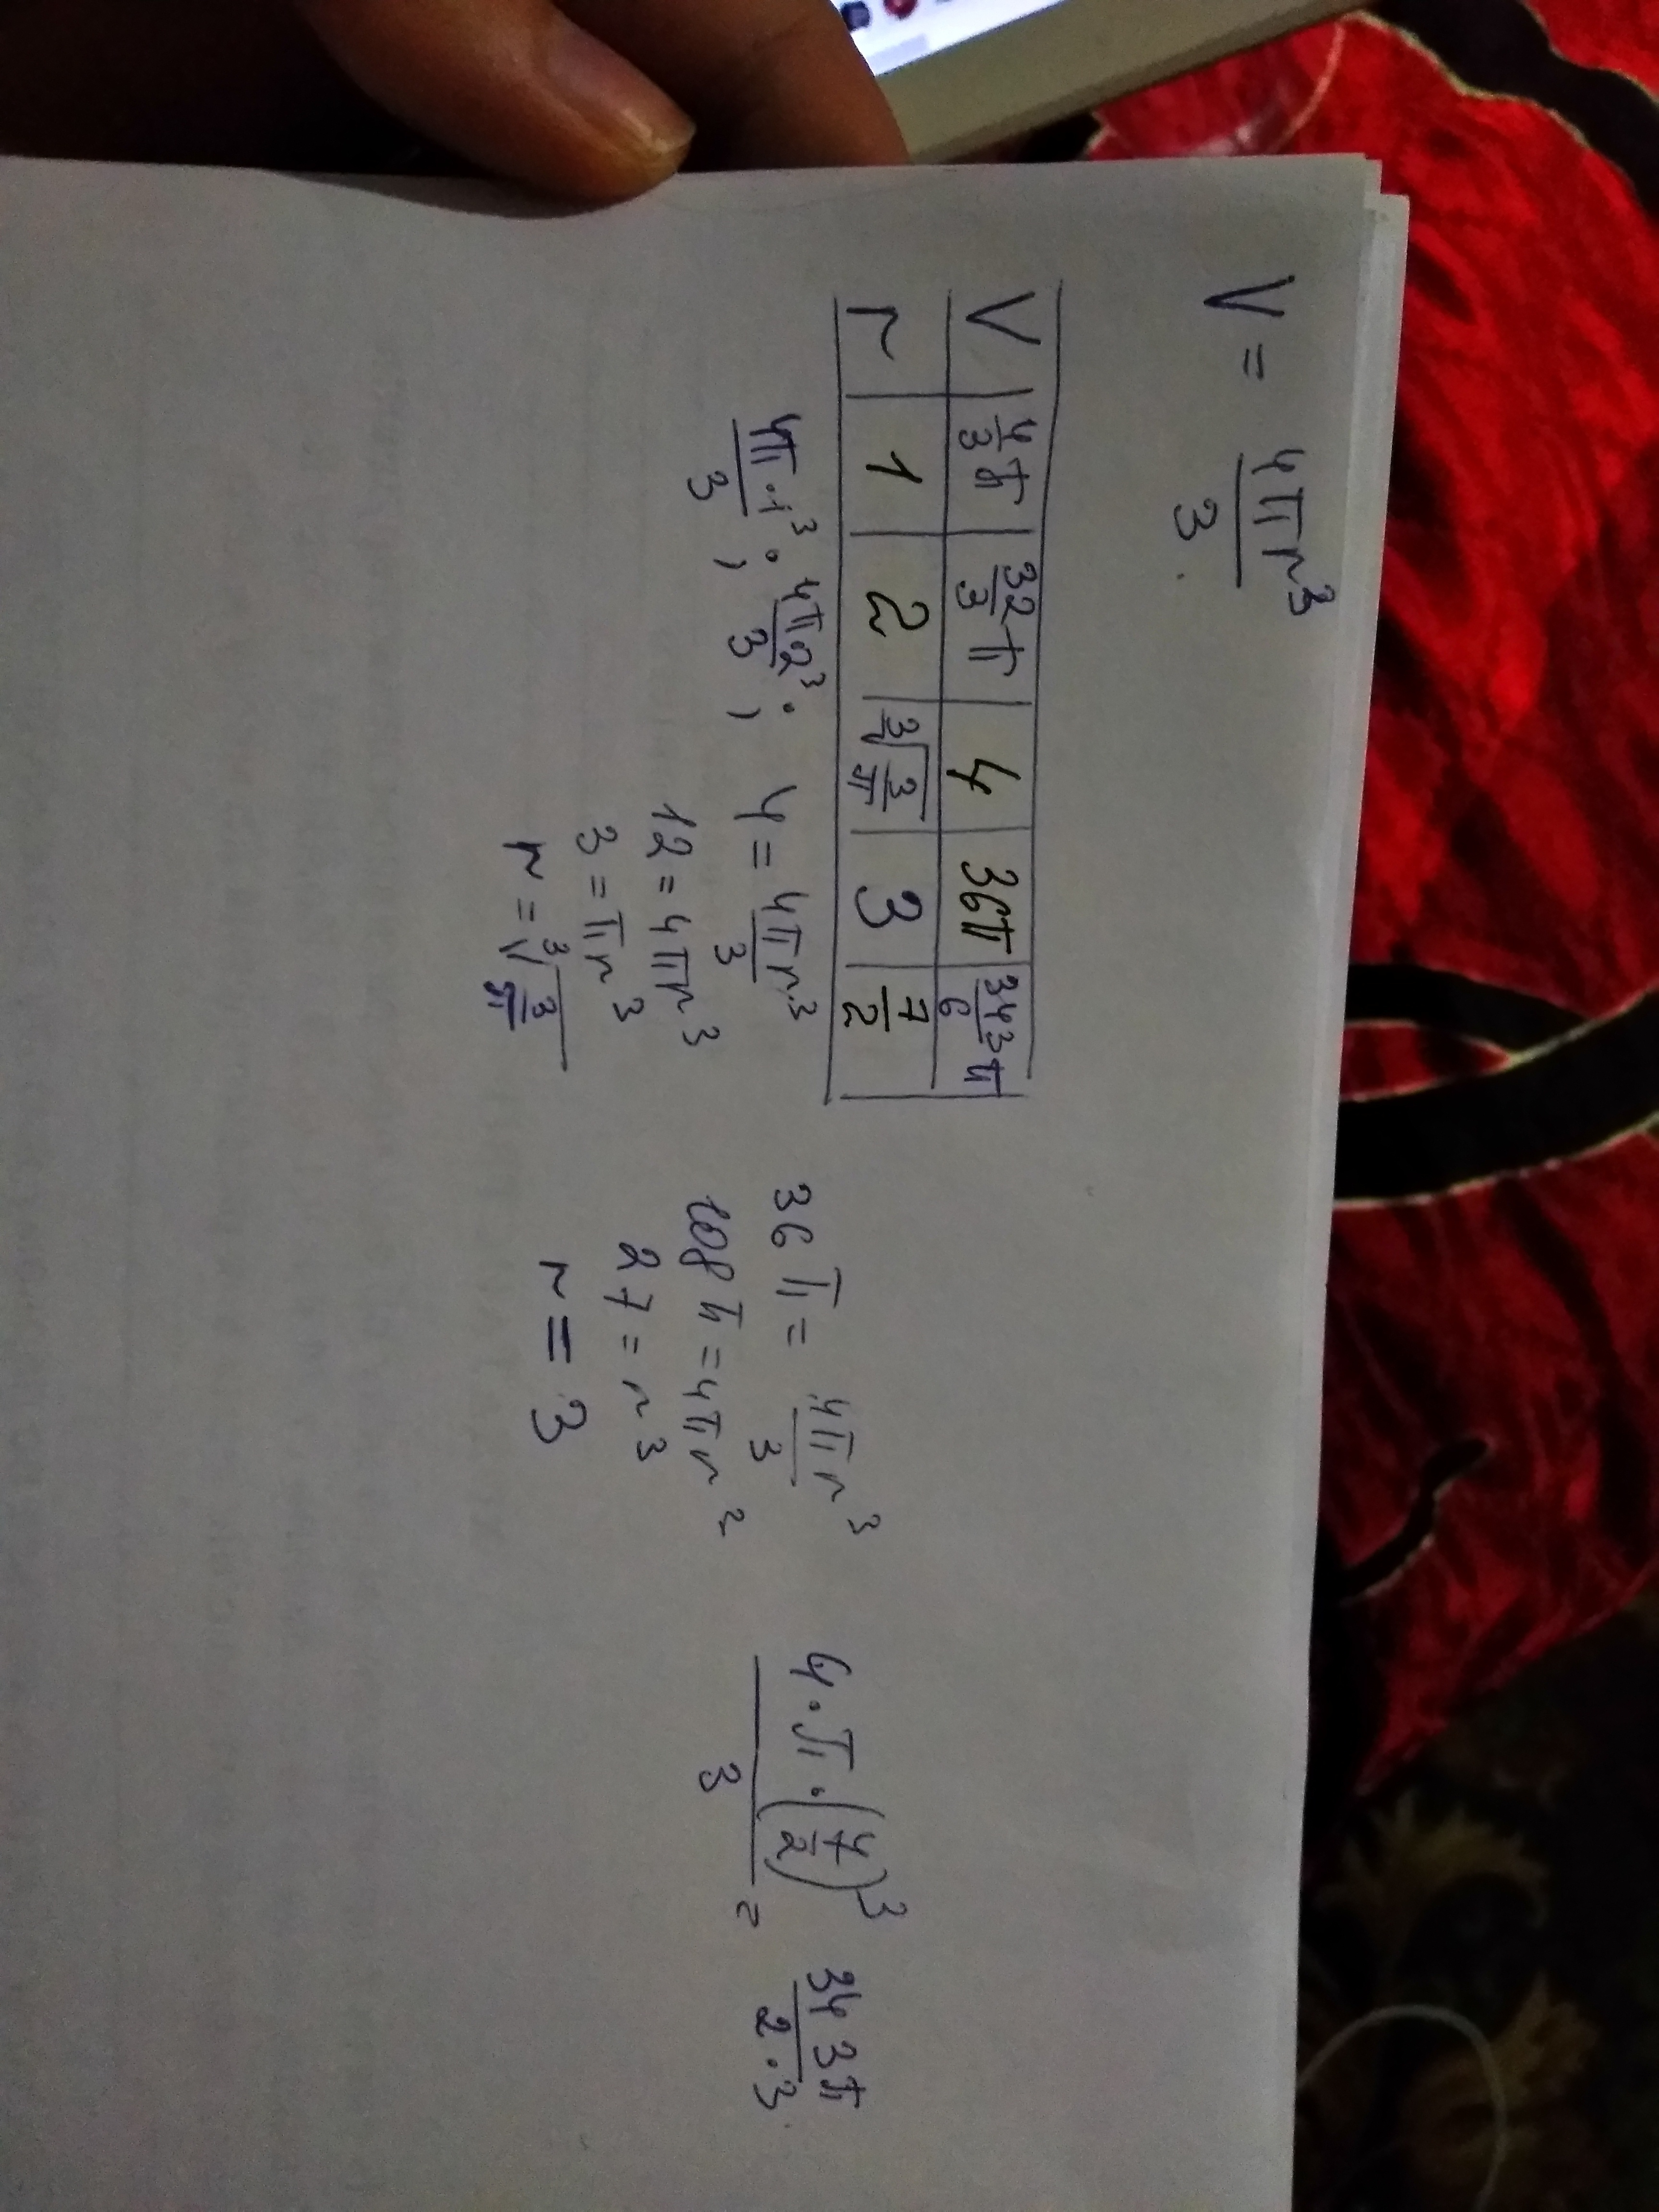 V = 4πr³/3
V | 4/3 π | 32/3 π | 4 | 36π | 343/6 π
r | 1 | 2 | ³√(3/π) | 3 | 7/2
4π·1³/3 ; 4π·2³/3 ; 4 = 4πr³/3
12 = 4πr³
3 = πr³
r = ³√(3/π)
36π = 4πr³/3
108π = 4πr²
27 = r³
r = 3
4·π·(7/2)³/3 = 343π/2·3